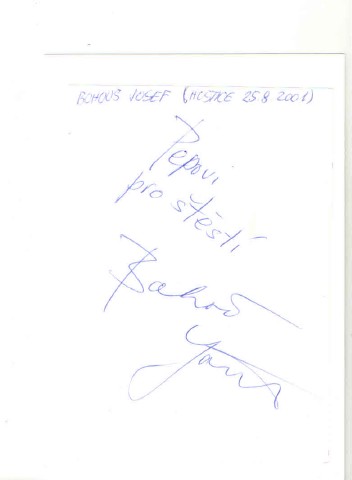 BOHOUŠ JOSEF (HOSTICE 25 8 2001)
Pepovi
pro štěstí
Bohouš